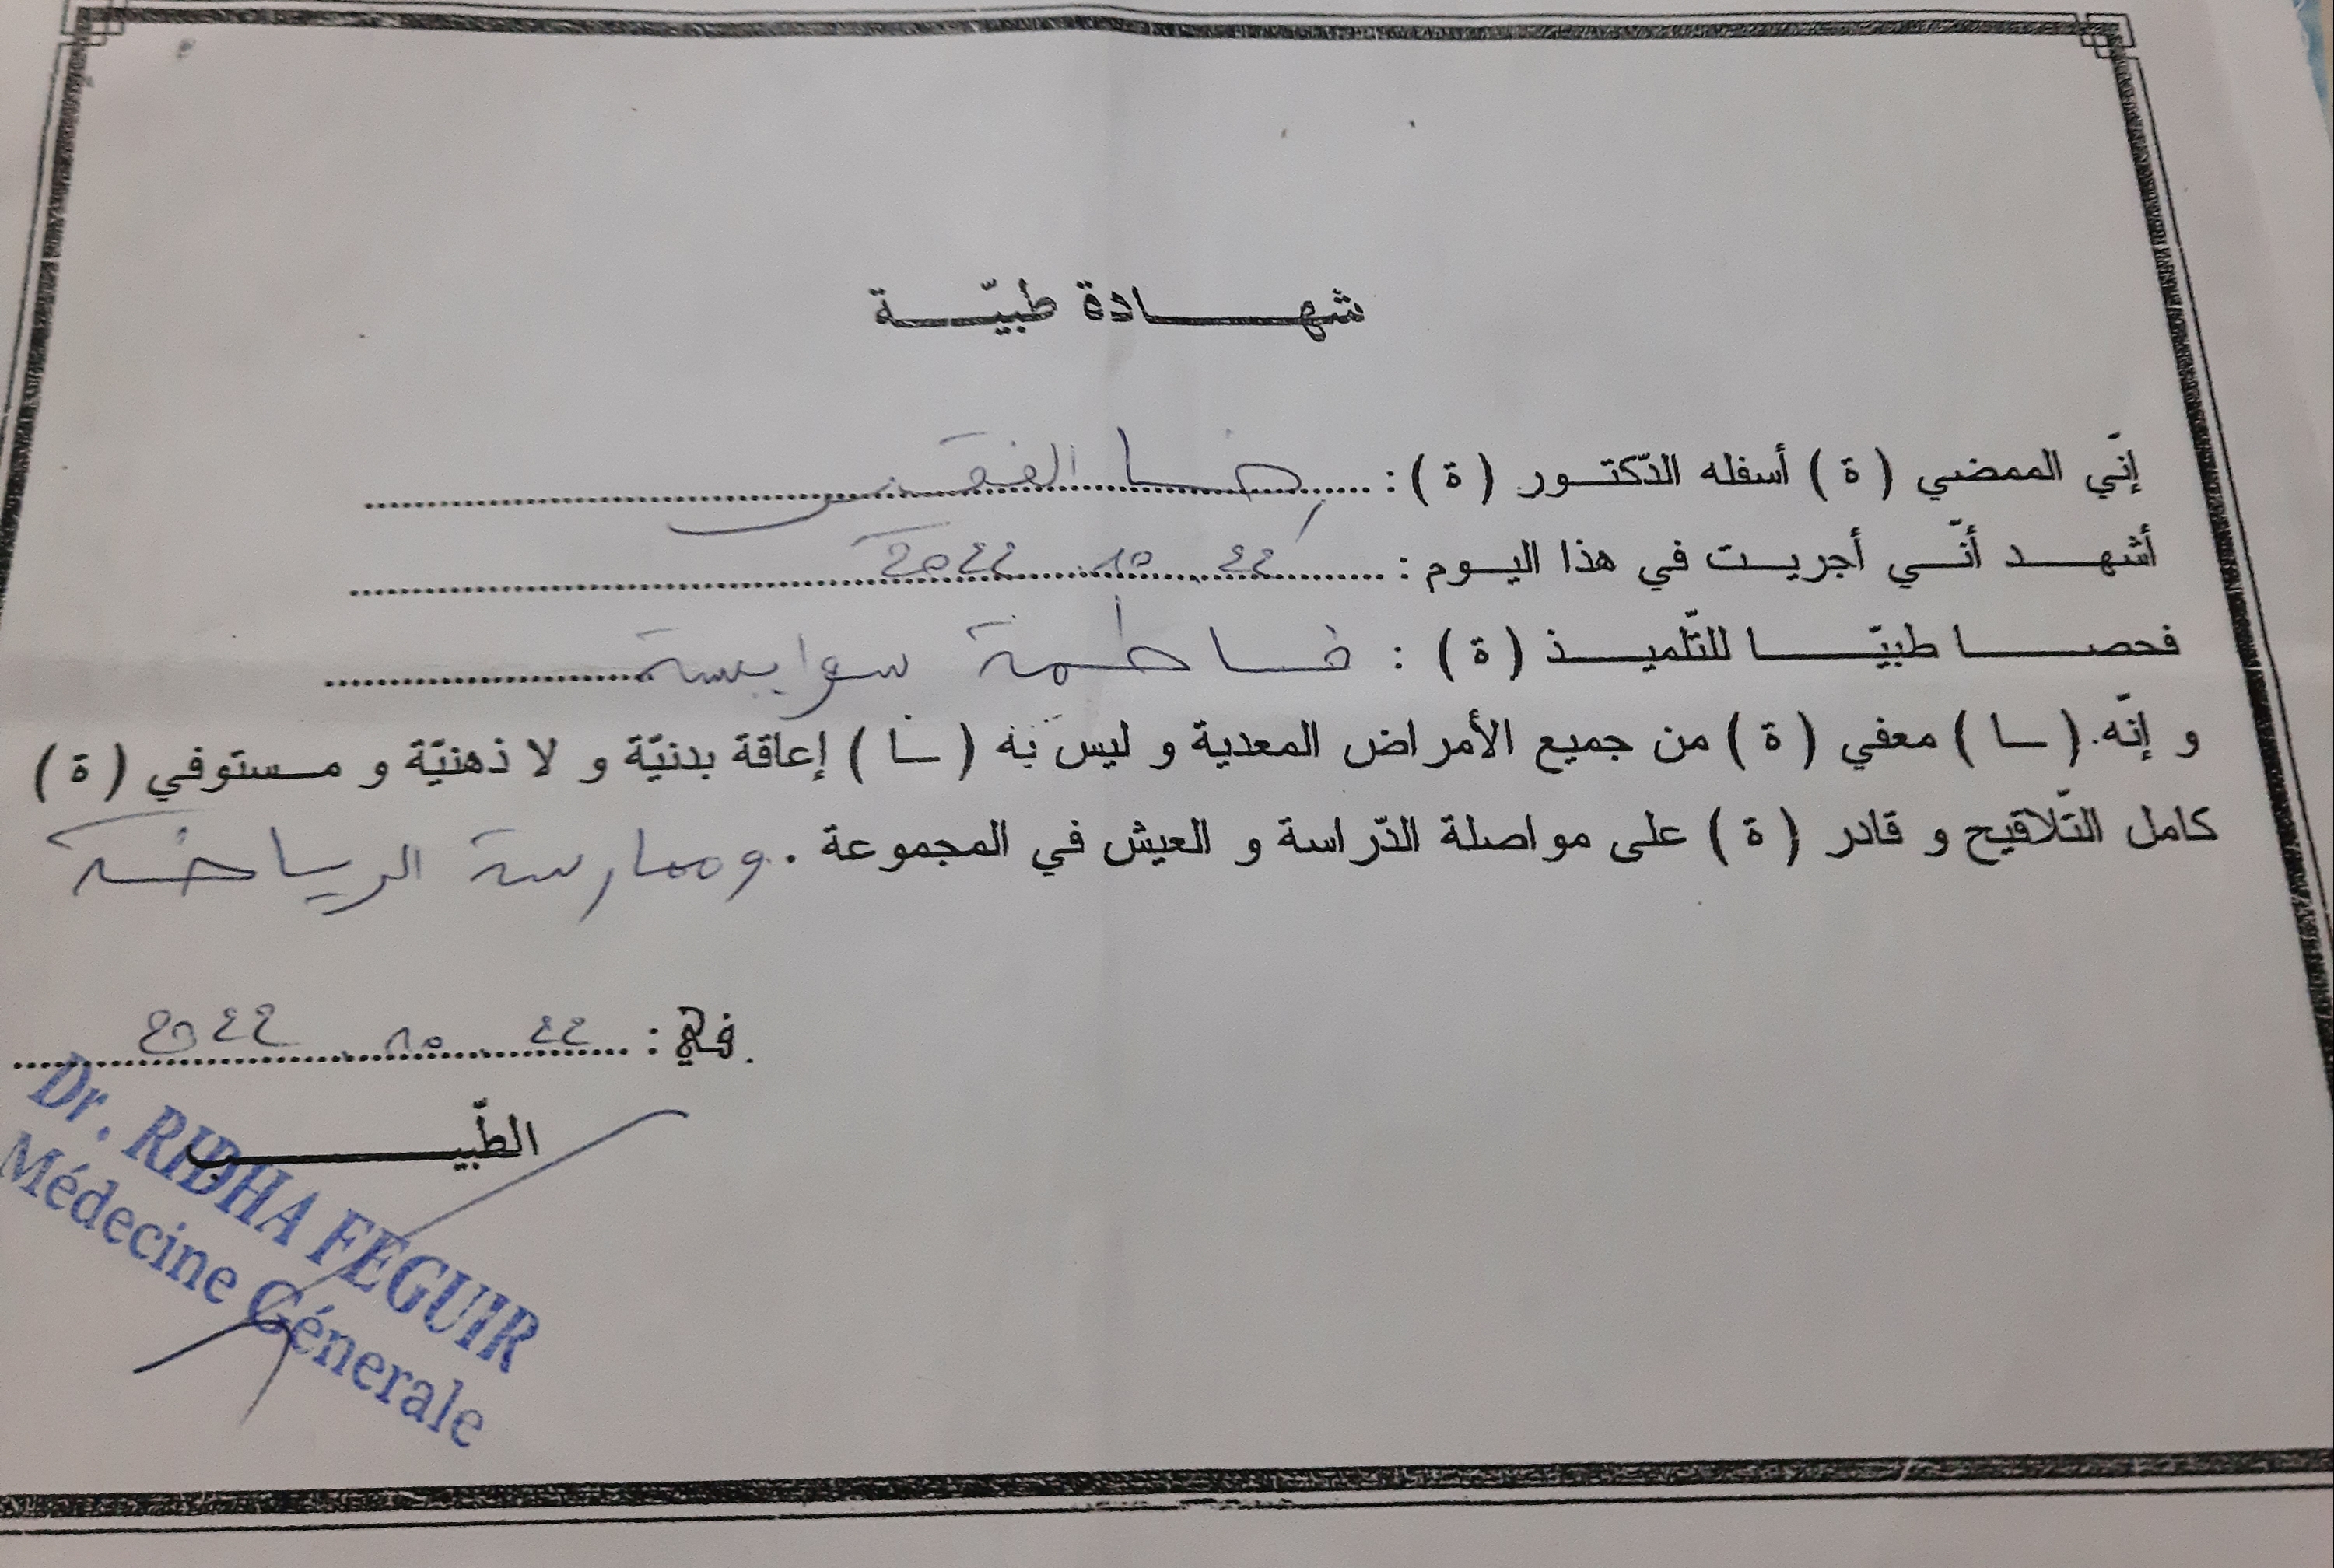 شهادة طبيّة
إنّي الممضي (ة) أسفله الدّكتور (ة) : رضا الفقير
أشهد أنّي أجريت في هذا اليوم : 22 10 2022
فحصا طبيّا للتّلميذ (ة) : فاطمة سوايسية
و إنّه (ـا) معفي (ة) من جميع الأمراض المعدية و ليس به (ـا) إعاقة بدنيّة و لا ذهنيّة و مستوفي (ة)
كامل التّلاقيح و قادر (ة) على مواصلة الدّراسة و العيش في المجموعة . وممارسة الرياضة
في : 22 10 2022
الطّبيب
Dr. RIDHA FEGUIR
Médecine Génerale